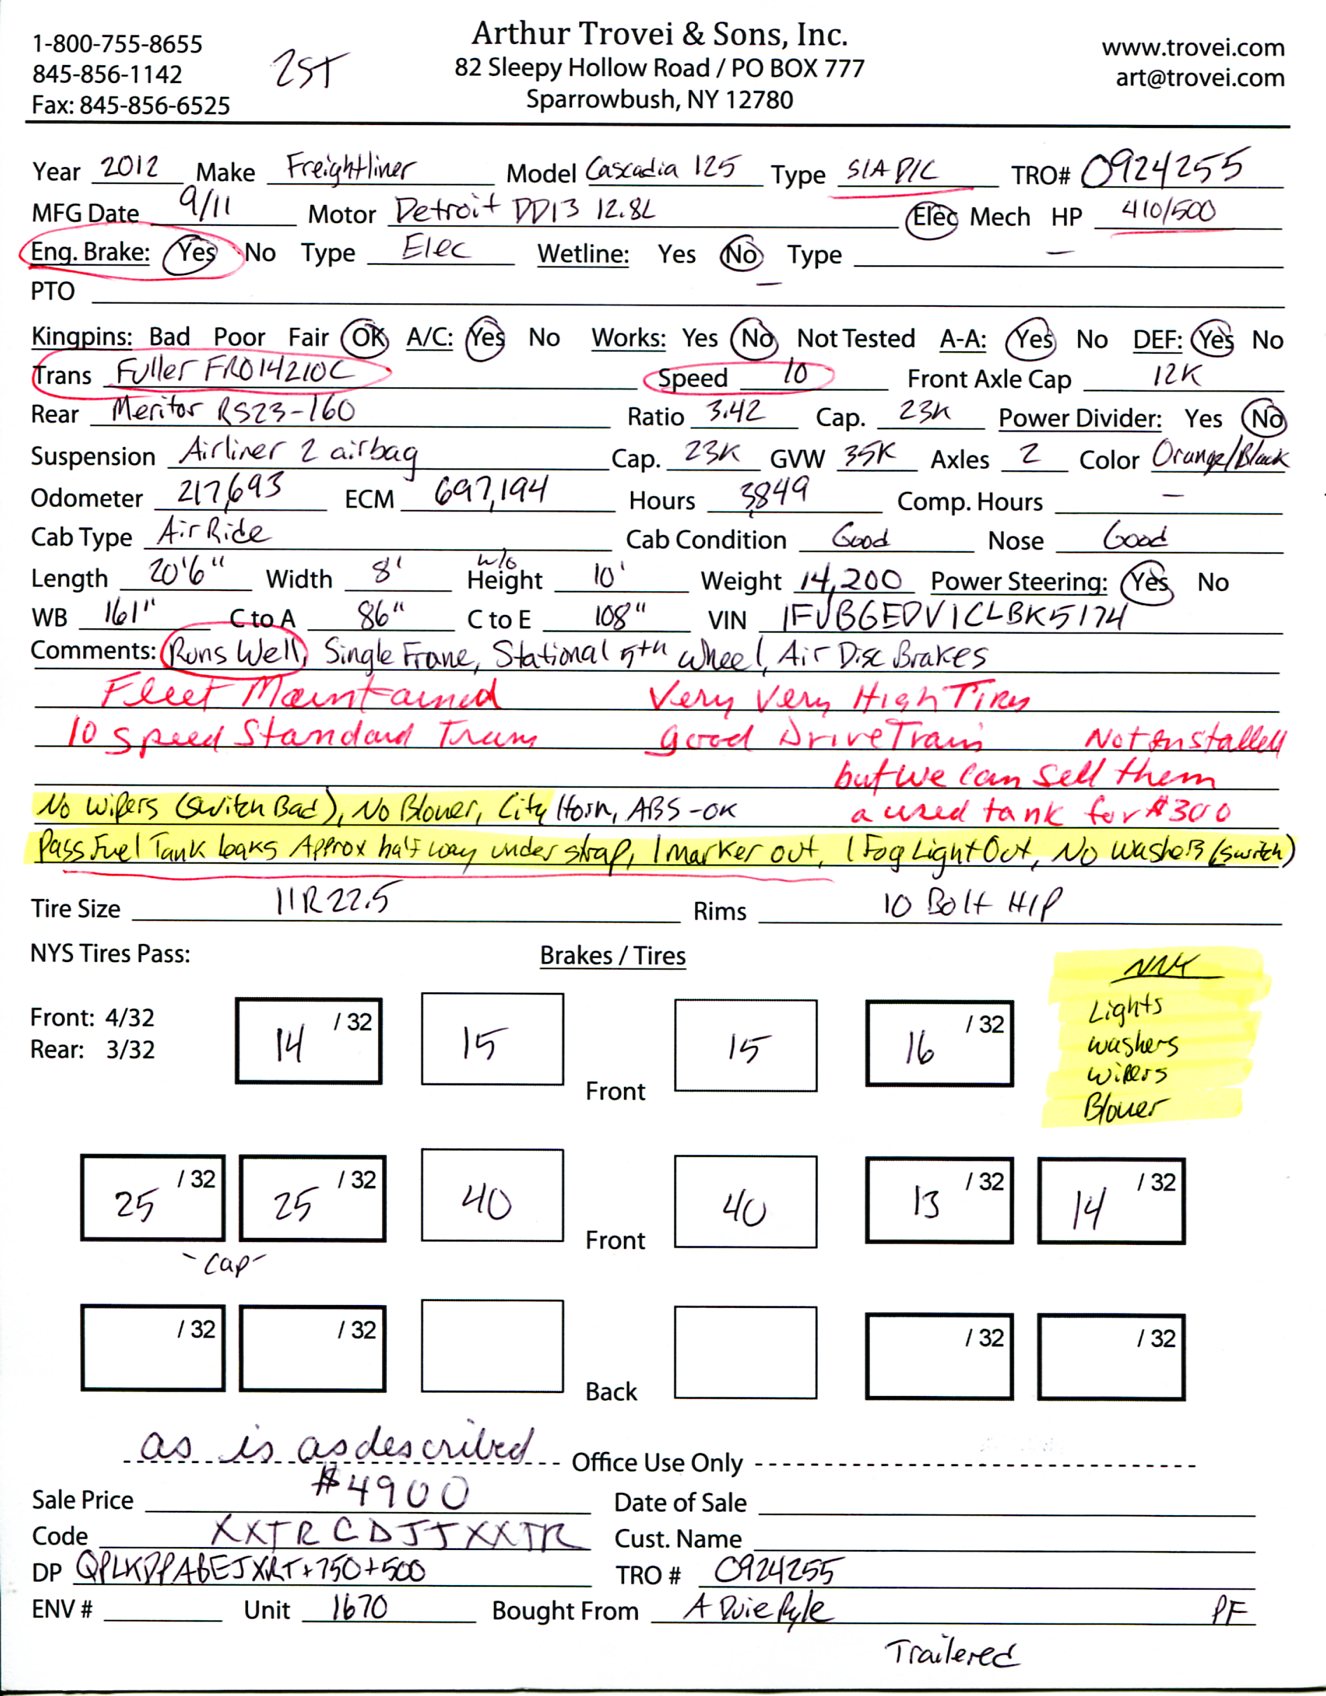 Arthur Trovei & Sons, Inc.
1-800-755-8655
845-856-1142
Fax: 845-856-6525
2ST
82 Sleepy Hollow Road / PO BOX 777
Sparrowbush, NY 12780
www.trovei.com
art@trovei.com
Year 2012 Make Freightliner Model Cascadia 125 Type S/A D/C TRO# 0924255
MFG Date 9/11 Motor Detroit DD13 12.8L Elec Mech HP 410/500
Eng. Brake: Yes No Type Elec Wetline: Yes No Type —
PTO —
Kingpins: Bad Poor Fair OK A/C: Yes No Works: Yes No Not Tested A-A: Yes No DEF: Yes No
Trans Fuller FRO14210C Speed 10 Front Axle Cap 12K
Rear Meritor RS23-160 Ratio 3.42 Cap. 23K Power Divider: Yes No
Suspension Airliner 2 airbag Cap. 23K GVW 35K Axles 2 Color Orange/Black
Odometer 217,693 ECM 697,194 Hours 3849 Comp. Hours —
Cab Type Air Ride Cab Condition Good Nose Good
Length 20'6" Width 8' w/o Height 10' Weight 14,200 Power Steering: Yes No
WB 161" C to A 86" C to E 108" VIN 1FUBGEDV1CLBK5174
Comments: Runs Well, Single Frane, Stational 5th wheel, Air Disc Brakes
Fleet Maintained Very Very High Tires
10 Speed Standard Trans good DriveTrain Not Installed
but we can sell them
No Wipers (Switch Bad), No Blower, City Horn, ABS-OK a used tank for $300
Pass Fuel Tank leaks Approx half way under strap, 1 marker out, 1 Fog Light Out, No washers (switch)
Tire Size 11R22.5 Rims 10 Bolt H/P
NYS Tires Pass: Brakes / Tires
Front: 4/32
Rear: 3/32
14 /32 15 Front 15 16 /32
Lights
washers
wipers
Blower
25 /32 25 /32 40 Front 40 13 /32 14 /32
-Cap-
/32 /32 Back /32 /32
as is as described Office Use Only
Sale Price $4900 Date of Sale
Code XXTRCDJJXXTR Cust. Name
DP QPLKDPABEJXRT+750+500 TRO # 0924255
ENV # Unit 1670 Bought From A Duie Pyle PF
Trailered